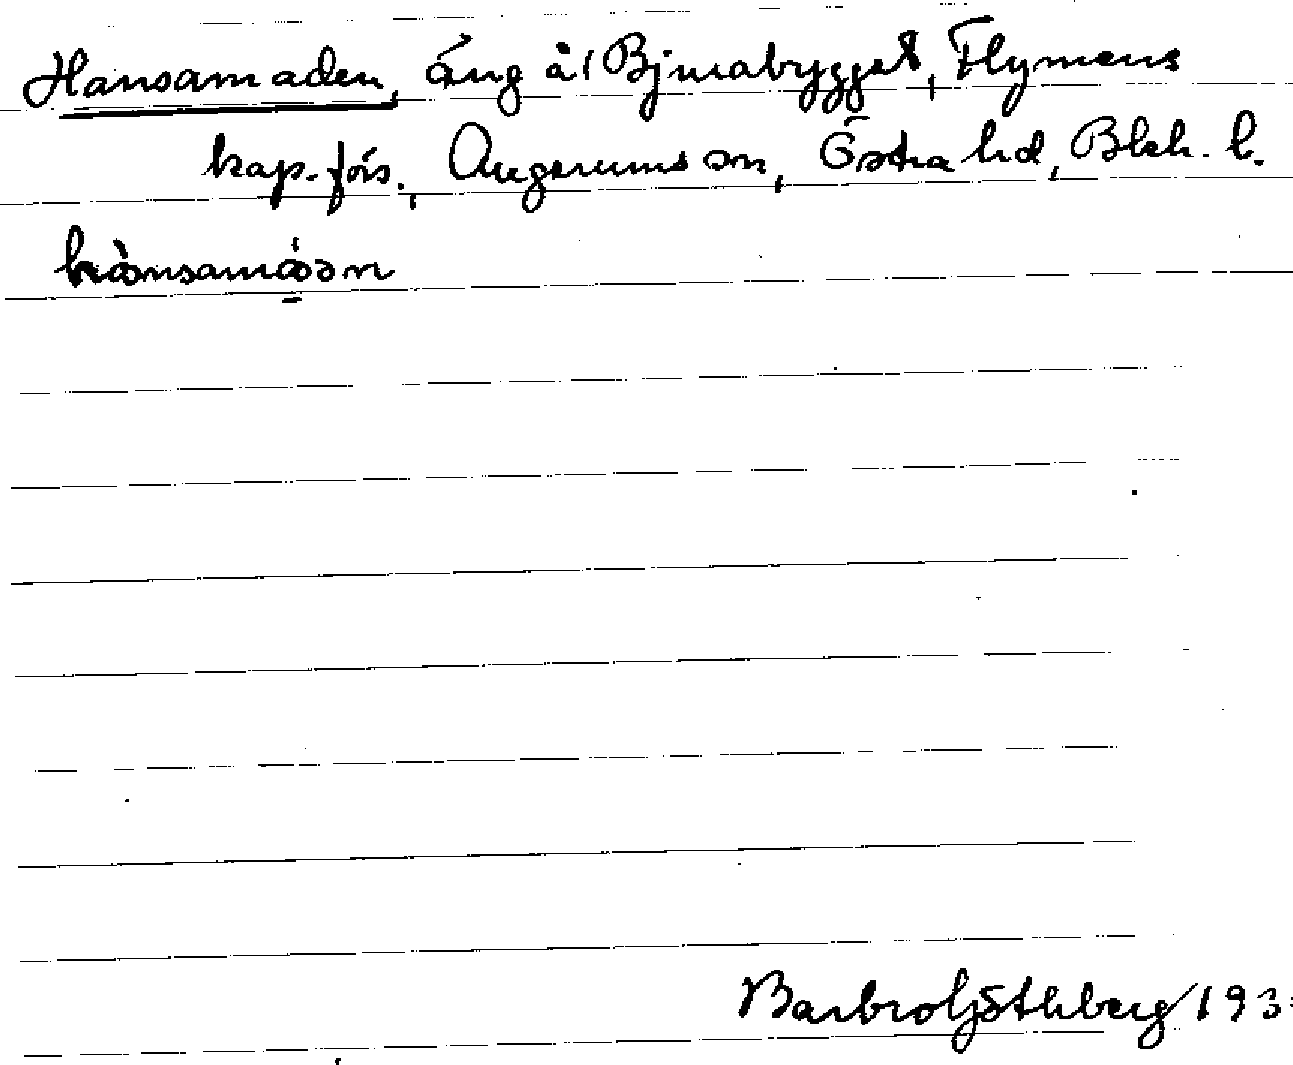 Hansamaden, äng å 1 Bjurabygget, Flymens
kap.förs., Augerums sn, Östra hd, Blek. l.
Barbro Göthberg 193